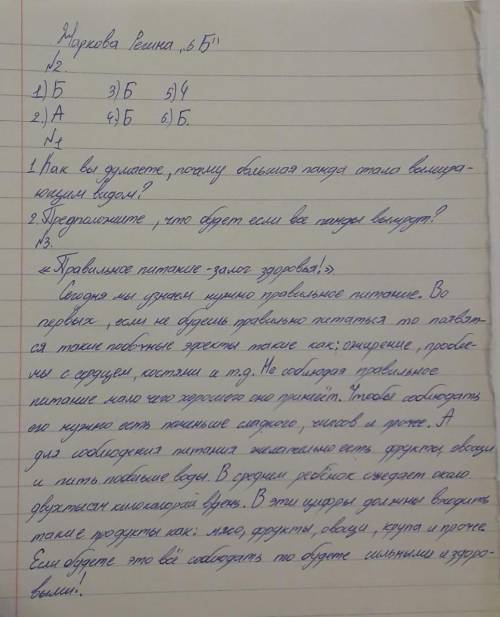 Жаркова Регина „6 Б"
№2.
1.) Б 3) Б 5) Ч
2.) А 4.) Б 6) Б.
№1
1. Как вы думаете, почему большая панда стала вымира-
ющим видом?
2. Предположите, что будет если все панды вымрут?
№3.
«Правильное питание - залог здоровья!»
Сегодня мы узнаем нужно правильное питание. Во
первых, если не будешь правильно питаться то появят-
ся такие побочные эфекты такие как: ожирение, пробле-
мы с сердцем, костями и т.д. Не соблюдая правильное
питание мало чего хорошего оно принесёт. Чтобы соблюдать
его нужно есть поменьше сладкого, чипсов и прочее. А
для соблюдения питания желательно есть фрукты, овощи
и пить побольше воды. В среднем ребёнок съедает около
двухтысяч килокалорий вдень. В эти цифры должны входить
такие продукты как: мясо, фрукты, овощи, крупа и прочее
Если будете это всё соблюдать то будете сильными и здоро-
выми!